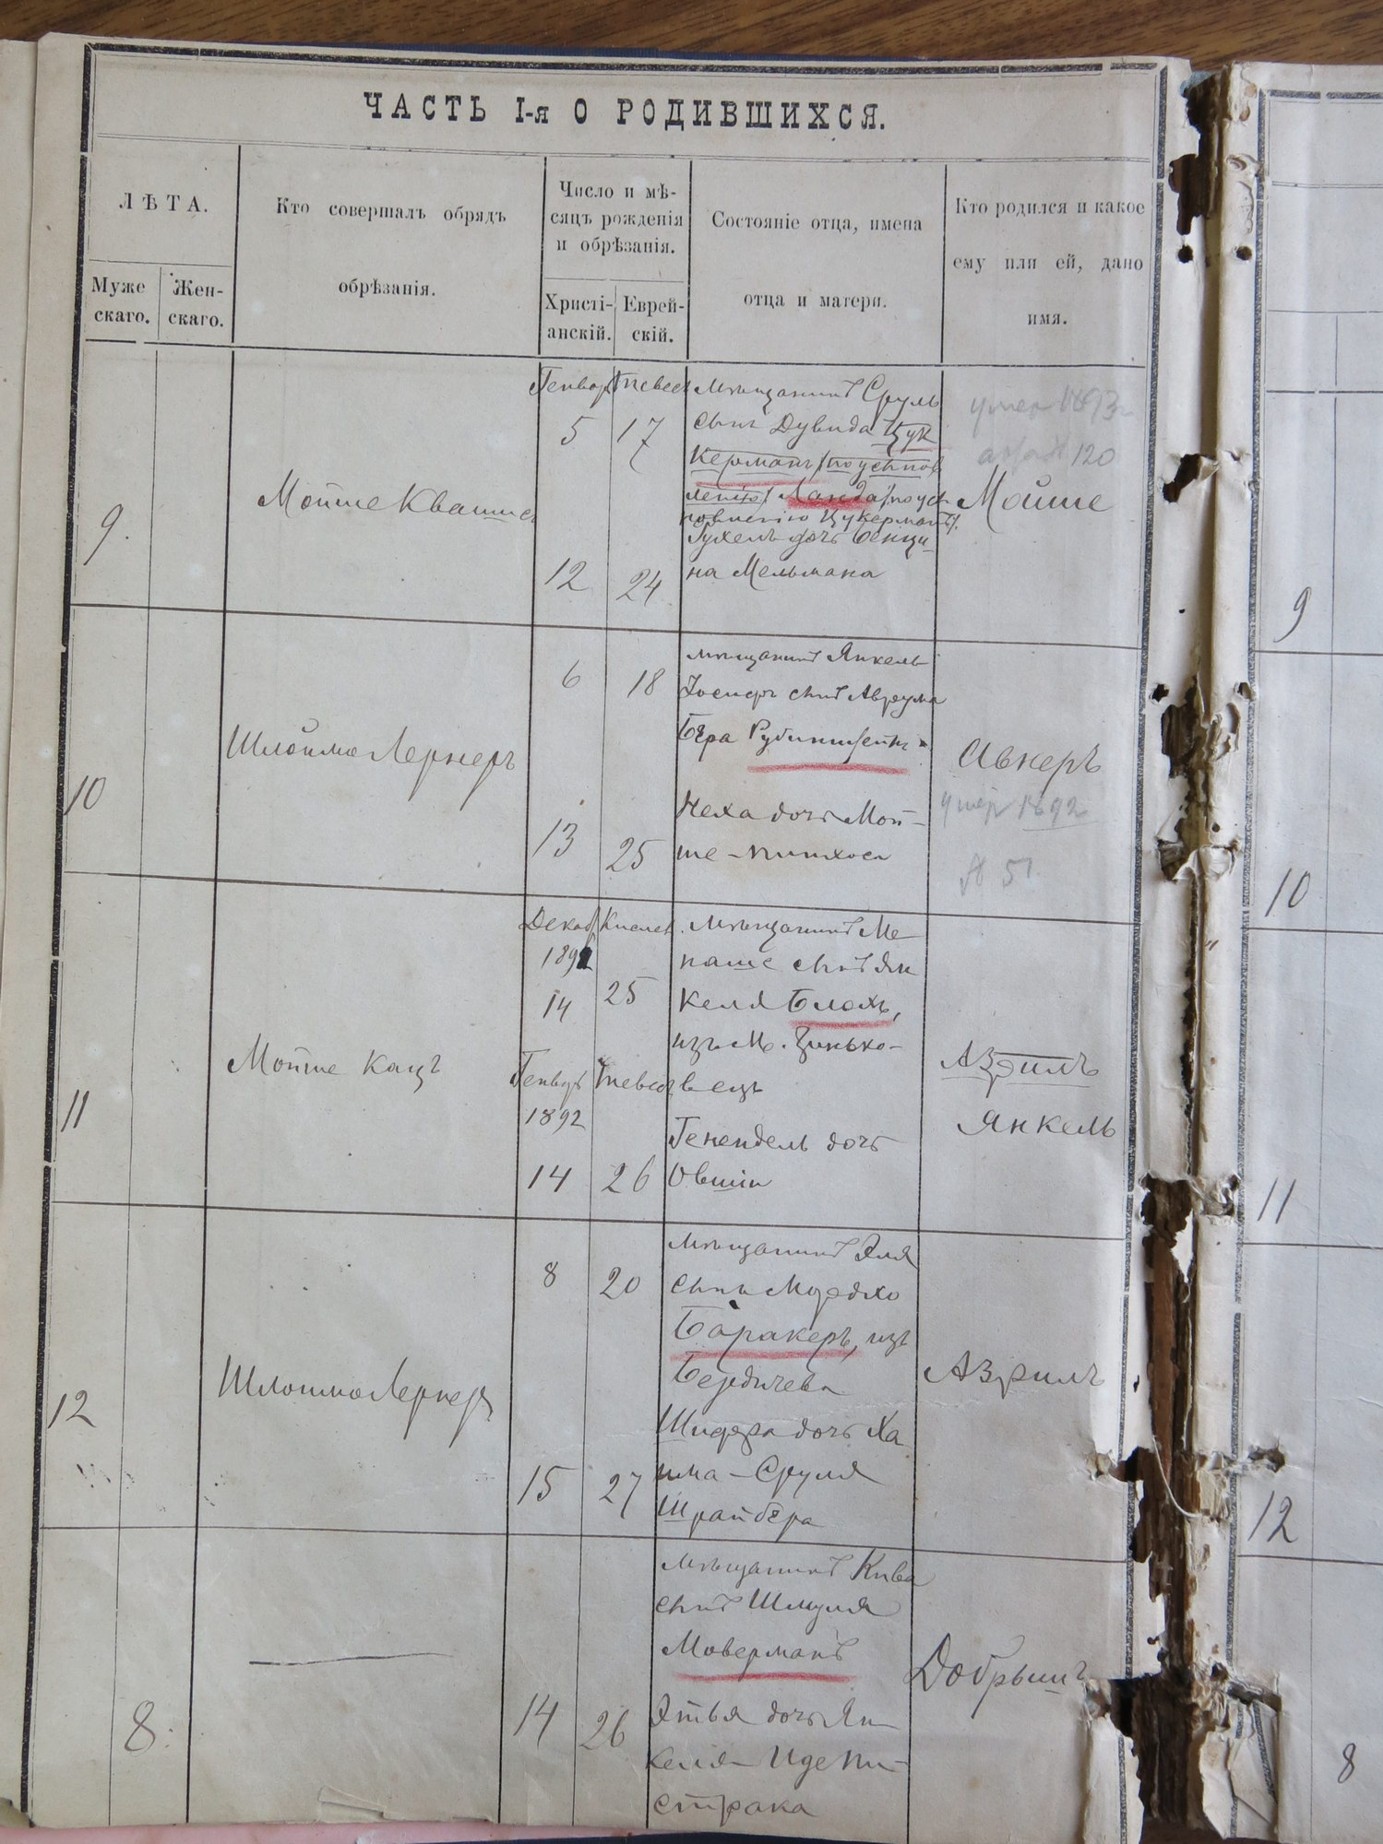 ЧАСТЬ I-я О РОДИВШИХСЯ.
ЛѢТА.
Муже
скаго.
Жен-
скаго.
Кто совершалъ обрядъ
обрѣзанія.
Число и мѣ-
сяцъ рожденія
и обрѣзанія.
Христі-
анскій.
Еврей-
скій.
Состояніе отца, имена
отца и матери.
Кто родился и какое
ему или ей, дано
имя.
9.
Мойше
5 17
12 24
Мѣщанинъ Сруль
сынъ Дувида Цук
керманъ
Ланда
Рухель дочь Бенци
на Мельмана
Мойше
умер 1893
120
9
10
Шлойма Лернеръ
6 18
13 25
мѣщанинъ Янкель
Іосифъ сынъ Аврума
Бера Рубинштейнъ
Неха дочь Мой-
ше-Пинхоса
Авнеръ
умер 1892
№ 51
10
11
Мойше Кацъ
Декаб Кислев.
1891
14 25
Генварь Тевес
1892
14 26
Мѣщанинъ Ме
наше сынъ Ян
келя Блохъ,
изъ М. Зинько-
вецъ
Генендель дочь
Овшіи
Азрилъ
Янкель
11
12
Шлойма Лернеръ
8 20
15 27
Мѣщанинъ Эля
сынъ Мордхо
Баракеръ, изъ
Бердичева
Шифра дочь Ха
има-Сруля
Шрайбера
Азрилъ
12
8.
14 26
Мѣщанинъ Кива
сынъ Шмуля
Моверманъ
Этья дочь Ян
келя-Иде Пи-
страка
Добрышъ
8